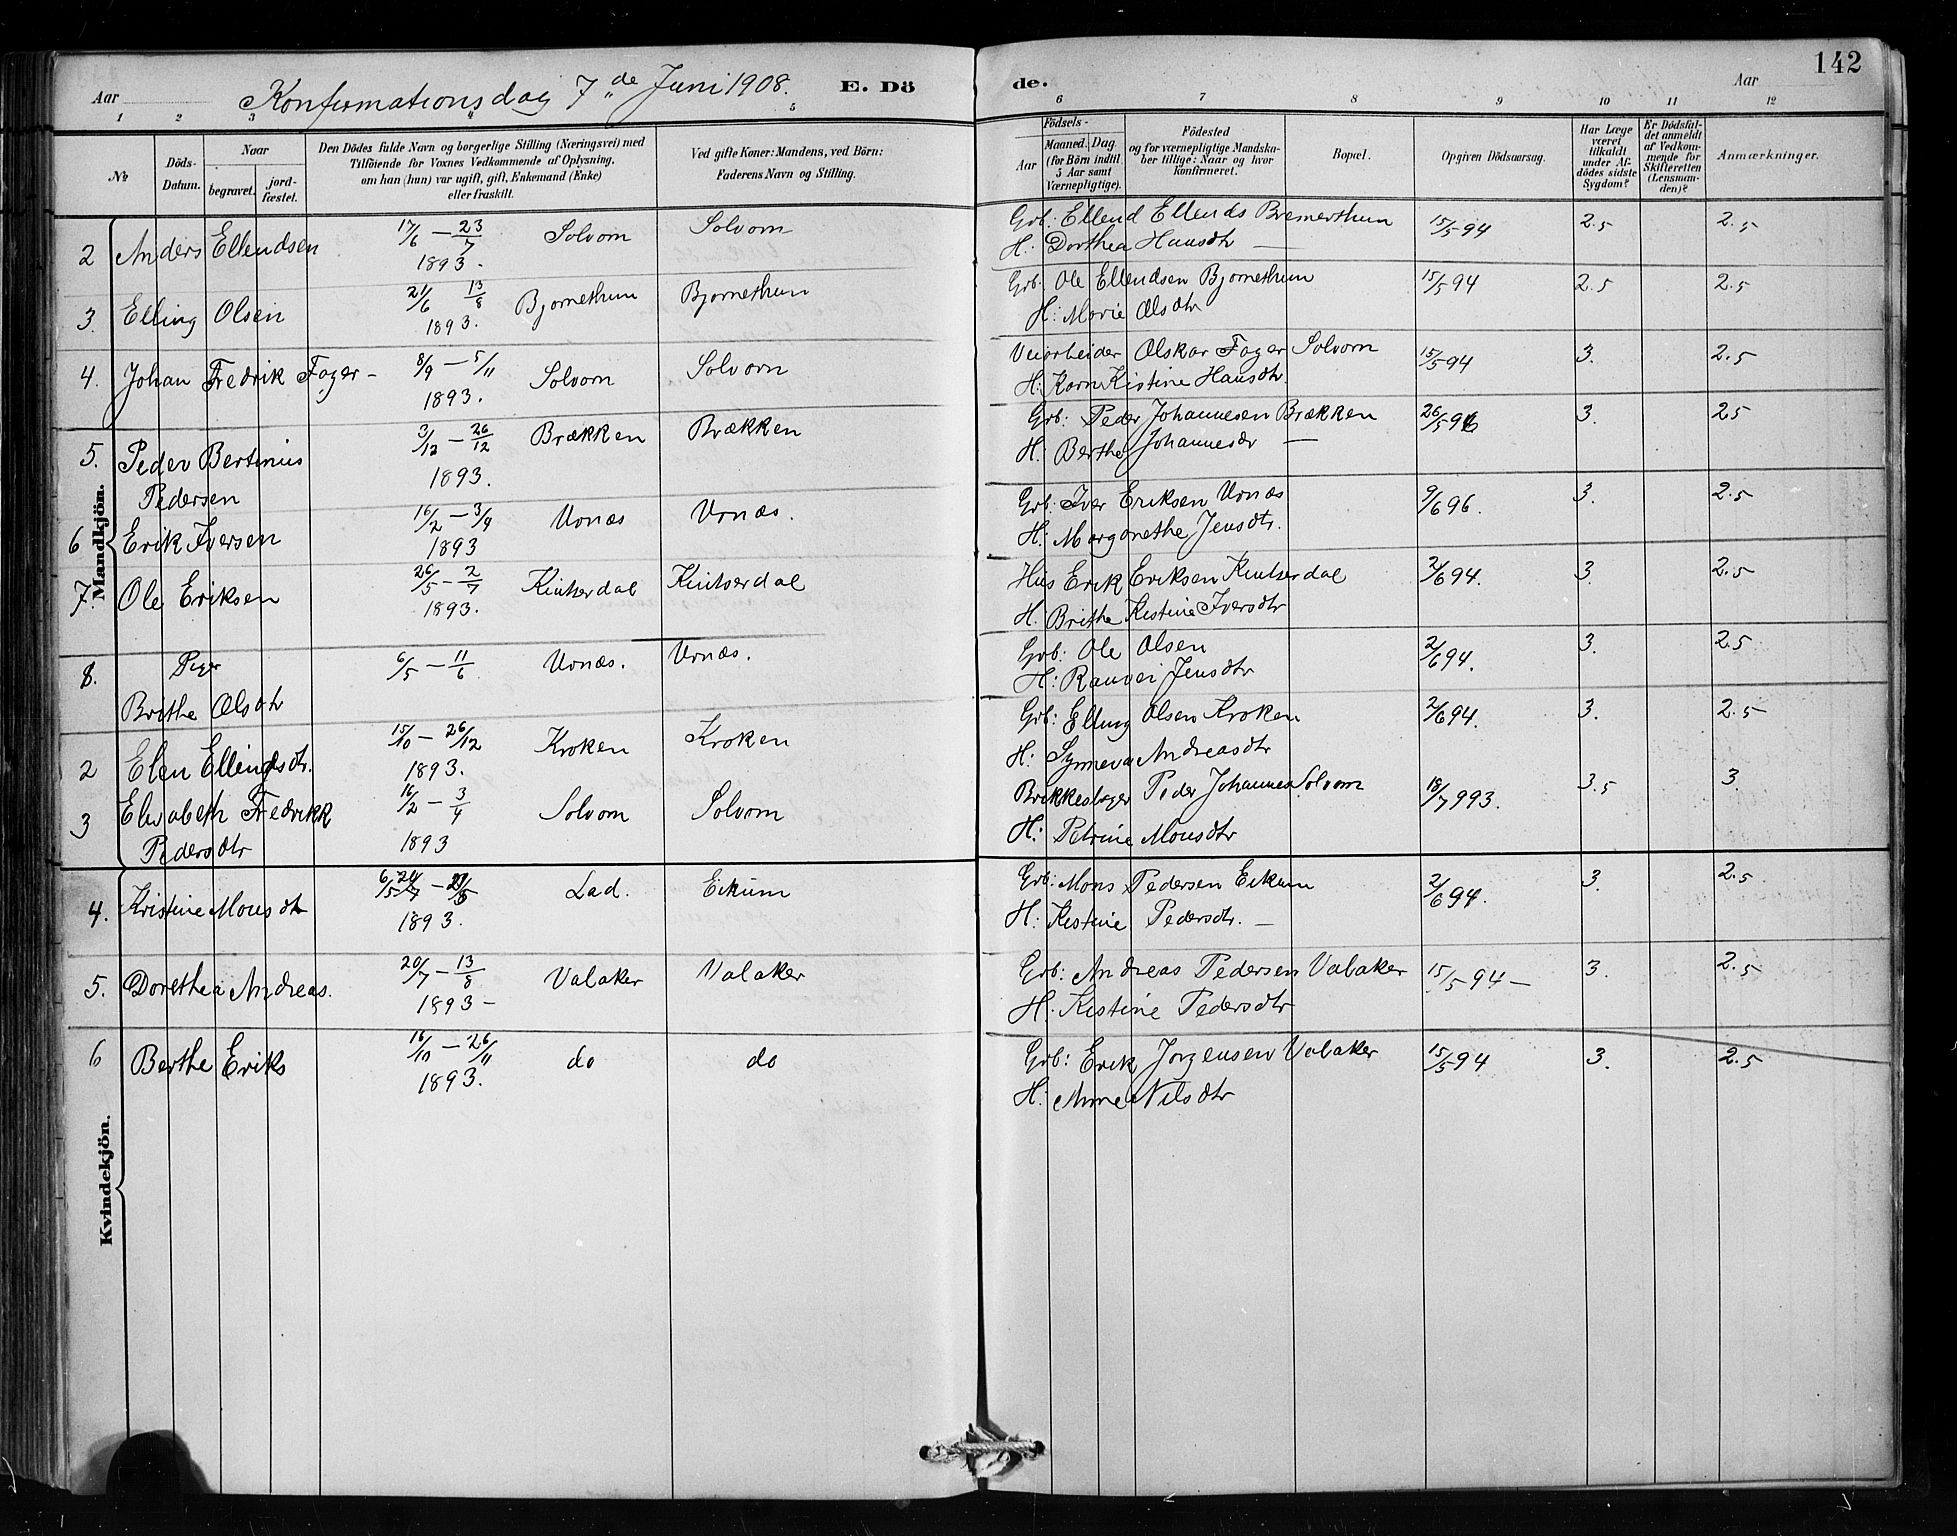 142
Aar Konfirmationsdag 7de Juni 1908. E. Dö
de. Aar
1 2 3 4 5
6 7 8 9 10 11 12
№ Döds-Datum. Naar begravet. jord-fæstet.
Den Dödes fulde Navn og borgerlige Stilling (Næringsvei) med
Tilföiende for Voxnes Vedkommende af Oplysning,
om han (hun) var ugift, gift, Enkemand (Enke)
eller fraskilt.
Ved gifte Koner: Mandens, ved Börn:
Faderens Navn og Stilling.
Födsels-
Aar Maaned. Dag.
(for Börn indtil
5 Aar samt
Værnepligtige).
Födested
og for værnepligtige Mandska-
ber tillige: Naar og hvor
konfirmeret.
Bopæl.
Opgiven Dödsaarsag.
Har Læge
været
tilkaldt
under Af-
dödes sidste
Sygdom?
Er Dödsfal-
det anmeldt
af Vedkom-
mende for
Skifteretten
(Lensman-
den)?
Anmærkninger.
Mandkjön.
2 Anders Ellendsen 17/6 — 23/7 1893. Solvorn Solvorn
Grb: Ellend Ellends Bremerthun 15/5 94 2.5 2.5
H: Dorthea Hansdtr —
3. Elling Olsen 21/6 13/8 1893. Bjornethun Bjornethun
Grb. Ole Ellendsen Bjornethun 15/5 94 2.5 2.5
H: Marie Olsdtr
4. Johan Fredrik Fager – 8/9 — 5/11 1893. Solvorn Solvorn
Veiarbeider Olskar Fager Solvorn 15/5 94 3. 2.5
H: Karn Kistine Hansdtr.
5. Peder Bertinius Pedersen 3/12 — 26/12 1893. Brækken Brækken
Grb: Peder Johannesen Brækken 26/5 96 3. 25
H: Berthe Johannesdr —
6 Erik Iversen 16/2 — 3/4 1893 Urnæs Urnæs.
Grb: Iver Eriksen Urnæs 9/6 96. 3. 2.5
H: Margarethe Jensdtr.
7. Ole Eriksen 26/5 — 2/7 1893. Kinserdal Kinserdal
Hus Erik Eriksen Kinserdal 2/6 94. 3 2.5
H: Brithe Kistine Iversdtr
8. Piger
Brithe Olsdtr 6/5 — 11/6 Urnæs. Urnæs.
Grb: Ole Olsen 2/6 94. 3. 2.5
H: Ranvei Jensdtr
2 Elen Ellingsdtr. 15/10 — 26/12 1893. Kroken Kroken
Grb: Elling Olsen Kroken 2/6 94. 3. 2.5
H: Synneva Andreasdtr
3 Elisabeth Fredrikk Pedersdtr 16/2 — 3/4 1893 Solvorn Solvorn
Peder Johannes Solvorn 18/7 993. 3.5 3.
H: Petrine Monsdtr
Kvindekjön.
4. Kristine Monsdtr 1893. Lad. Eikum
Grb: Mons Pedersen Eikum 2/6 94. 3. 2.5
H: Kistine Pedersdtr. —
5. Dorethea Andreas. 20/7 — 13/8 1893 – Valaker Valaker
Grb: Andreas Pedersen Valaker 15/5 94 — 3. 2.5
H. Kistine Pedersdtr
6 Berthe Eriks 16/10 — 26/11 1893. do do
Grb: Erik Jorgensen Valaker 15/5 94 3. 2.5
H: Anne Nilsdtr